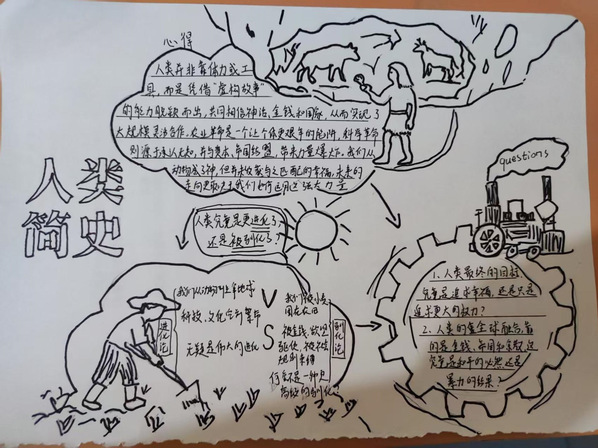 心得
人类并非靠体力或工
具，而是凭借"虚构故事"
的能力脱颖而出，共同相信神话、金钱和国家，从而实现了
大规模灵活合作，农业革命是一个让个体更艰辛的陷阱，科学革命
则源于承认无知，并与资本、帝国结盟，带来力量爆炸。我们从
动物成了神，但并未收获与之匹配的幸福，未来的
走向更取决于我们如何运用这强大力量
人类
简史
人类究竟是更进化了，
还是被驯化了？
questions
我们从动物到主宰地球
科技、文化全面攀升
无疑是伟大的进化
进化论
VS
我们被小麦
困在农田
被金钱、欲望
驱使，被社会
规则束缚
何尝不是一种更
高级的驯化？
驯化论
1、人类最终的目标
究竟是追求幸福，还是只是
追求更大的权力？
2、人类的走全球融合，靠
的是金钱、帝国和宗教，这
究竟是和平的必然还是
暴力的结果？